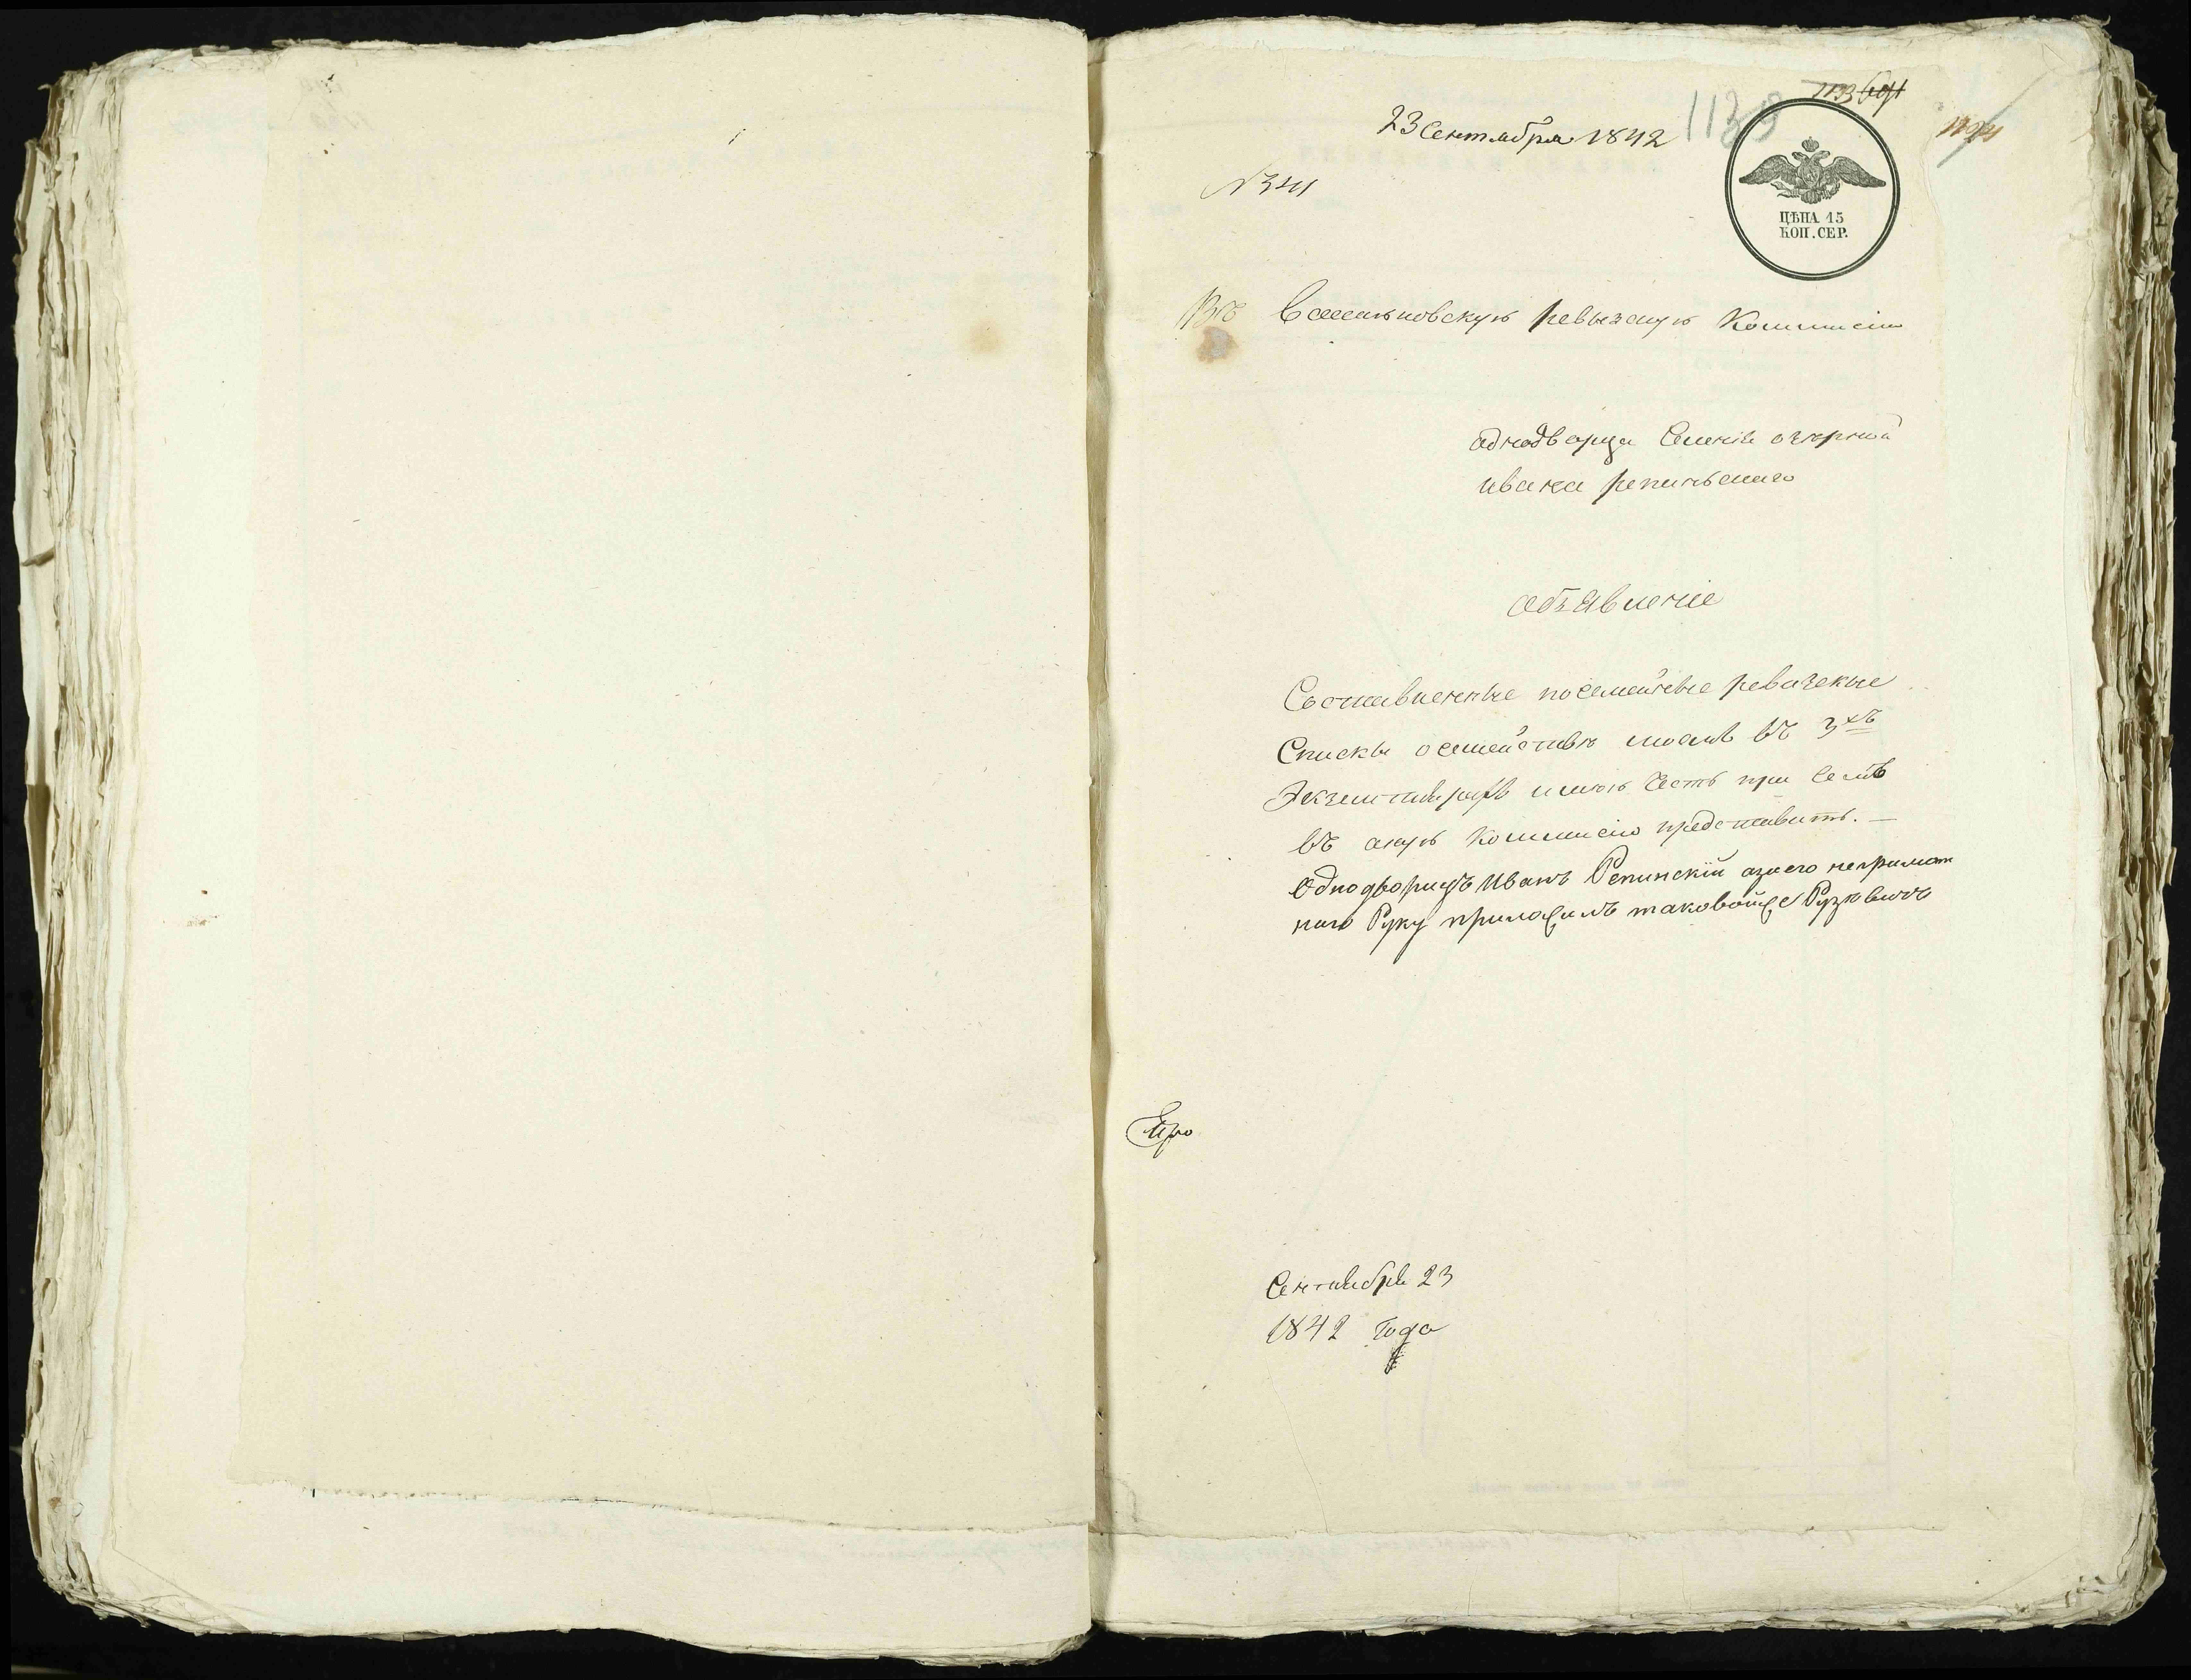 1133
1139
23 Сентября 1842
N 341
ЦѢНА 15
КОП. СЕР.
Въ Васильковскую ревизкую Коммисію
однодворца Селенія озерной
ивана репинскаго
объявленіе
Составленные посемейные ревизские
Списки осемействѣ моемъ въ 3хъ
Экземплярахъ имѣю Честь при Семъ
въ оную Коммисію представить. —
Однодворецъ Иванъ Репинскій азаего неграмот
наго Руку приложилъ таковойже
Сентября 23
1842 Года